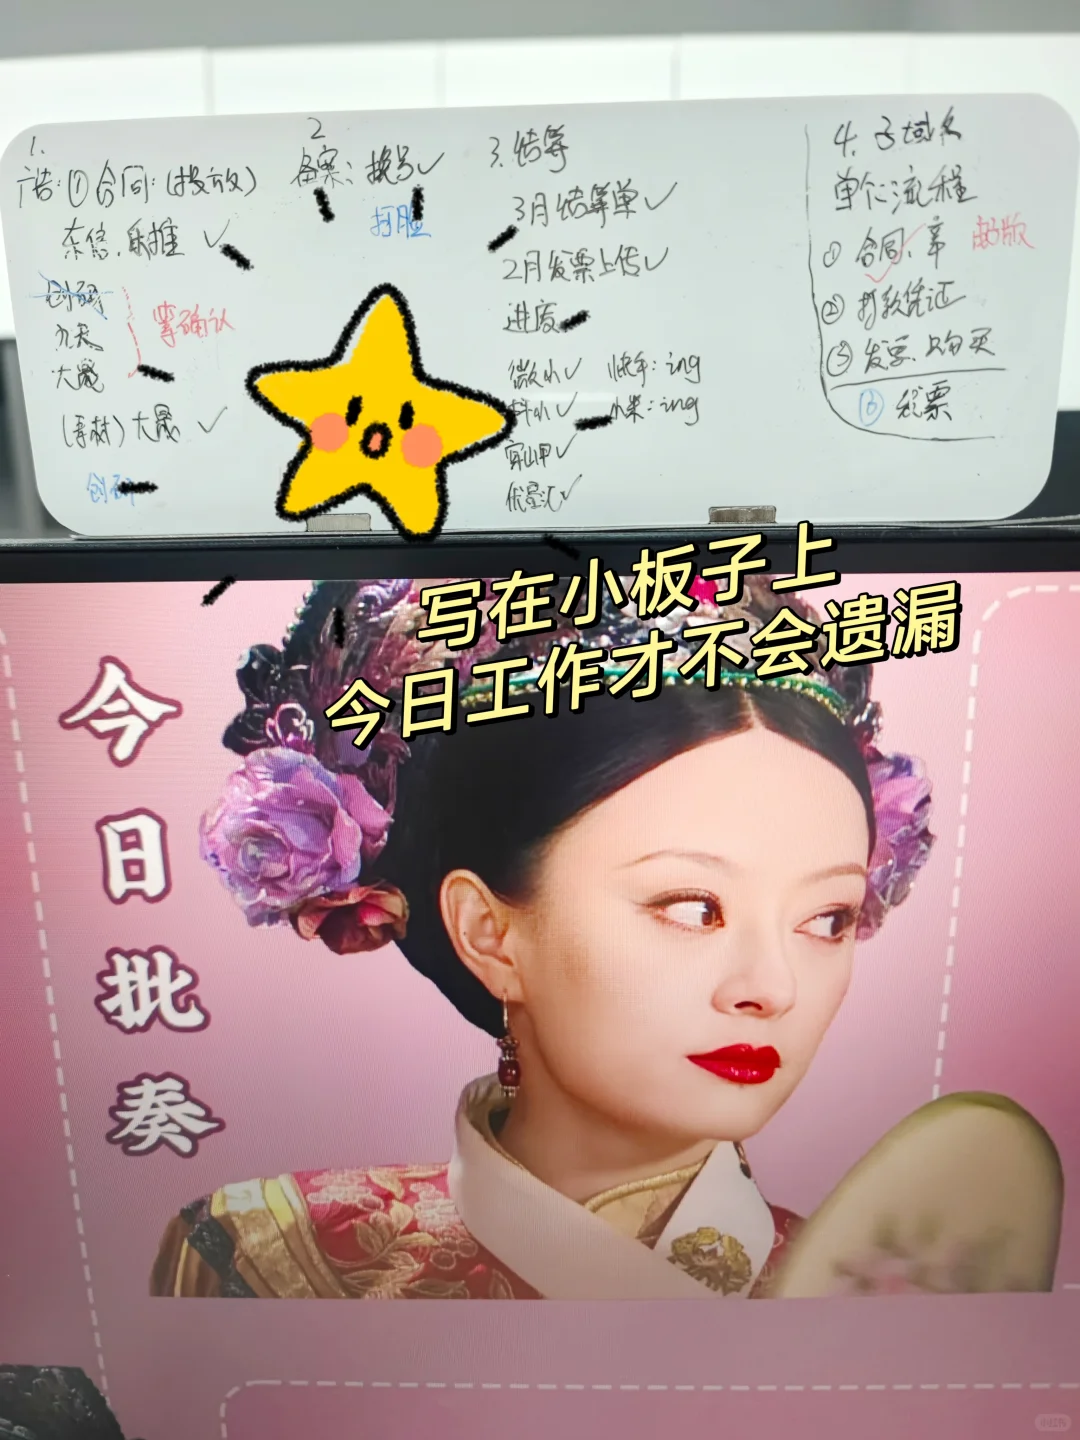 1.
广告:①合同:(投放)
乐推 ✓
创研
九天
大晟
等确认
(素材)大晟 ✓
创研
2
备案:换号✓
打脸
3.结算
3月结算单✓
2月发票上传✓
进度
微小✓ 快手:ing
抖小✓ 小米:ing
穿山甲✓
优量汇✓
4.子域名
单仁流程
①合同、章
邮版
②打款凭证
③发票
税票
写在小板子上
今日工作才不会遗漏
今日批奏
小红书